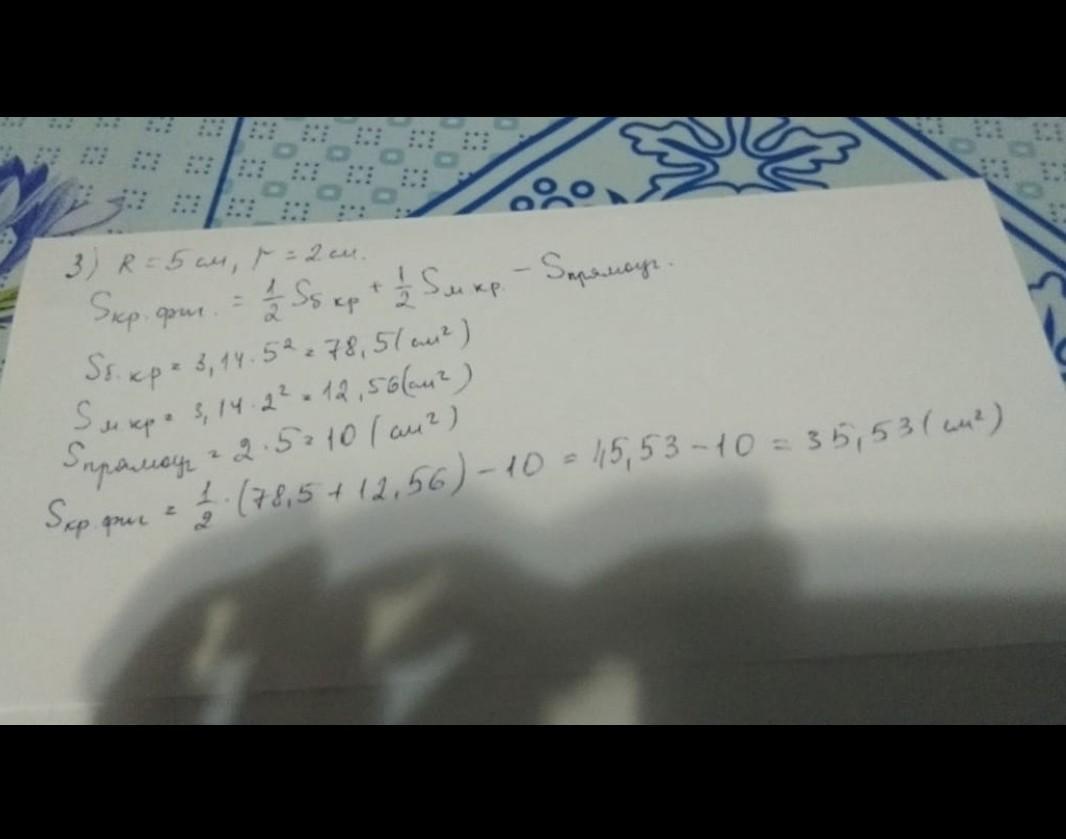 3) R = 5 см, r = 2 см.
Sкр. фиг. = 1/2 Sб кр + 1/2 Sм кр. - Sпрямоуг.
Sб. кр = 3,14 · 5² = 78,5 (см²)
Sм кр = 3,14 · 2² = 12,56 (см²)
Sпрямоуг = 2 · 5 = 10 (см²)
Sкр. фиг = 1/2 · (78,5 + 12,56) - 10 = 45,53 - 10 = 35,53 (см²)